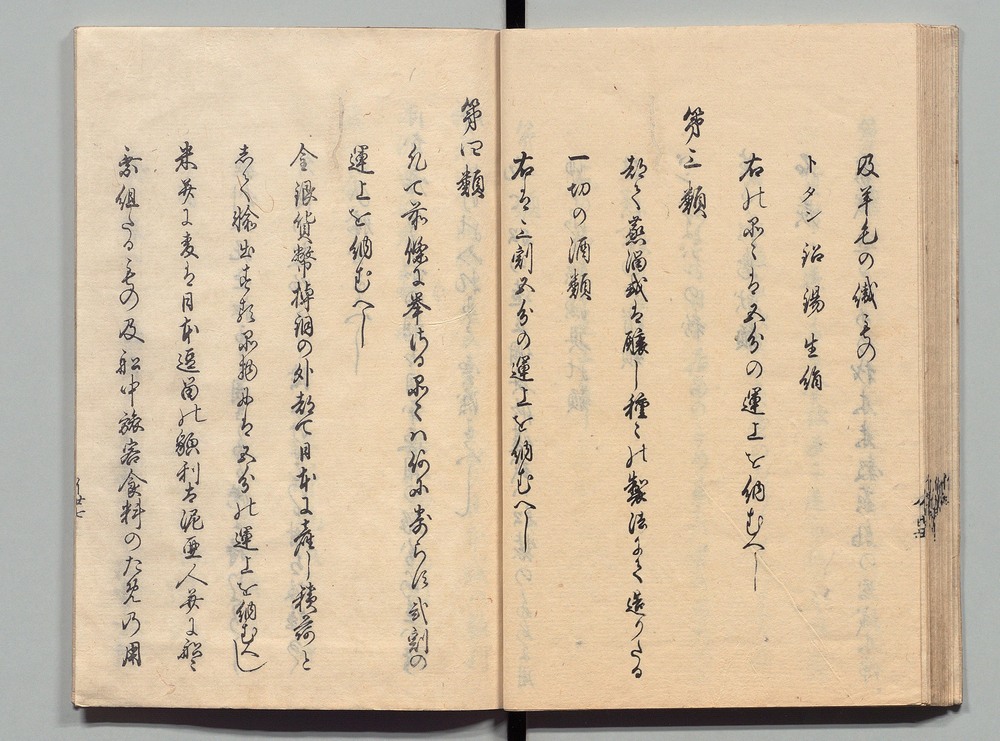 及羊毛の織もの
トタン 鉛 錫 生絹
右の品々は五分の運上を納むへし
第三類
都て蒸溜或は醸し種々の製法にて造りたる
一切の酒類
右は三割五分の運上を納むへし
第四類
凡て前條に挙さる品々ハ何に寄らす弐割の
運上を納むへし
金銀貨幣棹銅の外都て日本に産し積荷と
して輸出する品物には五分の運上を納むへし
米并に麦は日本逗留の額利は泥亜人并に船に
乗組たるもの及船中旅客食料のため乃用